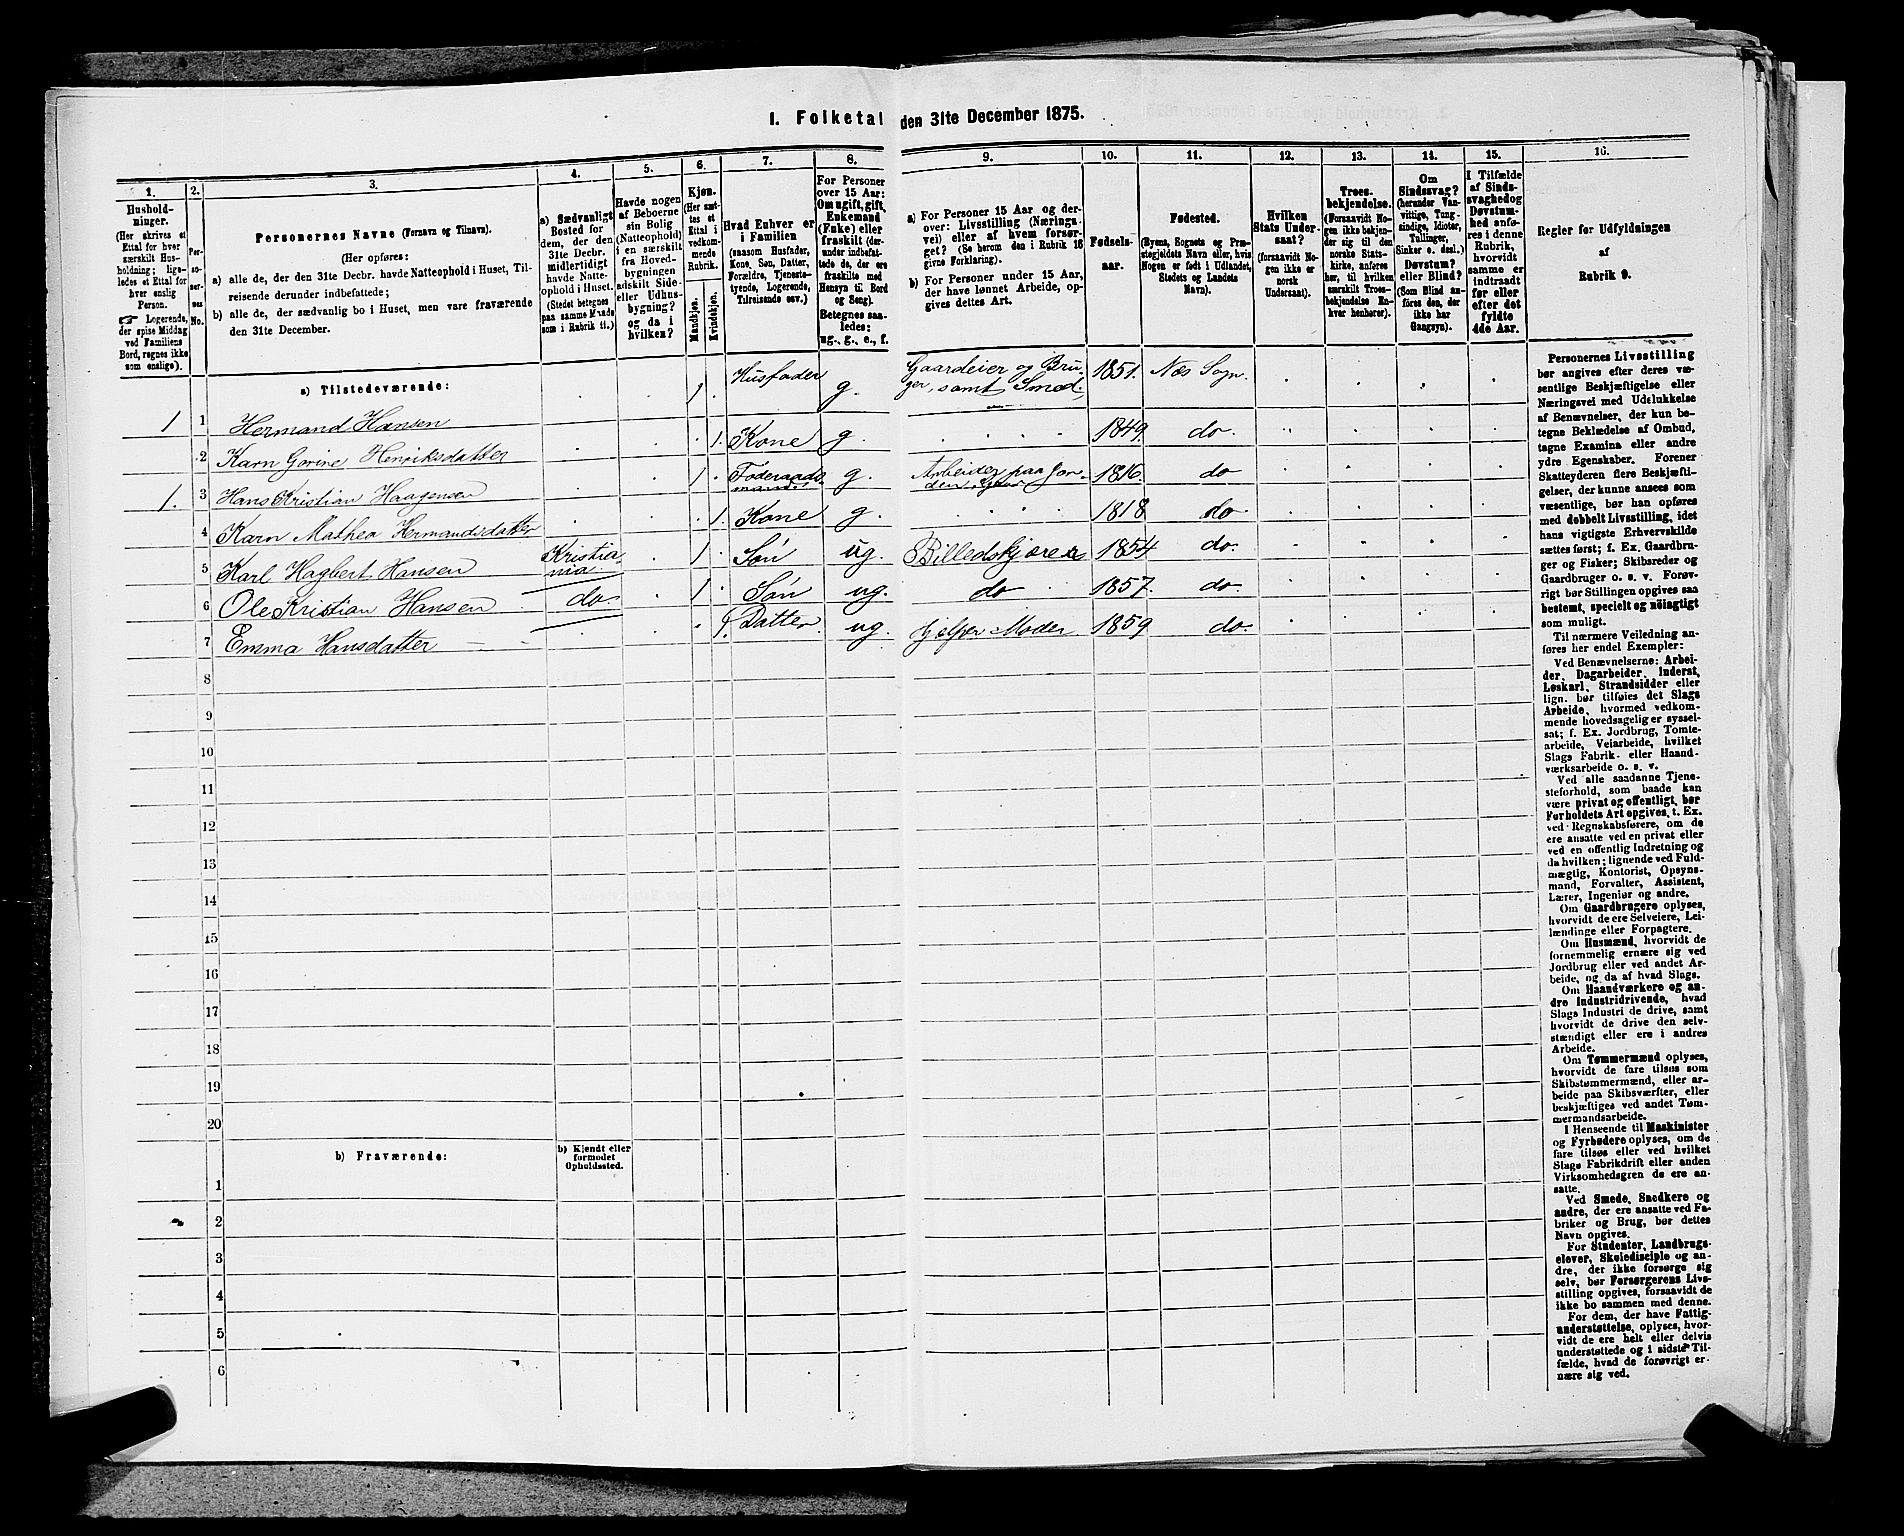 1. Folketal den 31te December 1875.
1.
2.
3.
4.
5.
6.
7.
8.
9.
10.
11.
12.
13.
14.
15.
16.
Hushold-
ninger.
(Her skrives et
Ettal for hver
særskilt Hus-
holdning; lige-
ledes et Ettal for
hver enslig
Person.
☞ Logerende,
der spise Middag
ved Familiens
Bord, regnes ikke
som enslige).
Per-
so-
ner-
nes
No.
Personernes Navne (Fornavn og Tilnavn).
(Her opføres:
a) alle de, der den 31te Decbr. havde Natteophold i Huset, Til-
reisende derunder indbefattede;
b) alle de, der sædvanlig bo i Huset, men vare fraværende
den 31te December.
a) Sædvanligt
Bosted for
dem, der den
31te Decbr.
midlertidigt
havde Natte-
ophold i Huset.
(Stedet betegnes
paa samme Maade
som i Rubrik 11.)
Havde nogen
af Beboerne
sin Bolig
(Natteophold)
i en særskilt
fra Hoved-
bygningen
adskilt Side-
eller Udhus-
bygning?
og da i
hvilken?
Kjøn.
(Her sæt-
tes et
Ettal i
vedkom-
mende
Rubrik.
Mandkjøn.
Kvindekjøn.
Hvad Enhver er
i Familien
(saasom Husfader,
Kone, Søn, Datter,
Forældre, Tjeneste-
tyende, Logerende,
Tilreisende osv.)
For Personer
over 15 Aar:
Om ugift, gift,
Enkemand
(Enke) eller
fraskilt (der-
under indbefat-
tede de, der ere
fraskilte med
Hensyn til Bord
og Seng).
Betegnes saa-
ledes:
ug., g., e., f.
a) For Personer 15 Aar og der-
over: Livsstilling (Nærings-
vei) eller af hvem forsør-
get? (Se herom den i Rubrik 16
givne Forklaring).
b) For Personer under 15 Aar,
der have lønnet Arbeide, op-
gives dettes Art.
Fødsels-
aar.
Fødested.
(Byens, Sognets og Præ-
stegjeldets Navn eller, hvis
Nogen er født i Udlandet,
Stedets og Landets
Navn).
Hvilken
Stats Under-
saat?
(forsaavidt No-
gen ikke er
norsk
Undersaat).
Troes-
bekjendelse.
(Forsaavidt No-
gen ikke bekjen-
der sig til den
norske Stats-
kirke, anføres
her, til hvilken
særskilt Troes-
bekjendelse En-
hver henhører).
Om
Sindssvag?
(herunder Van-
vittige, Tung-
sindige, Idioter,
Tullinger,
Sinker o. desl.)
Døvstum?
eller Blind?
(Som Blind an-
føres den, der
ikke har
Gangsyn).
I Tilfælde
af Sinds-
svaghed og
Døvstum-
hed anfø-
res i denne
Rubrik,
hvorvidt
samme er
indtraadt
før eller
efter det
fyldte
4de Aar.
Regler for Udfyldningen
af
Rubrik 9.
a) Tilstedeværende:
1 1 Hermand Hansen 1. Husfader g. Gaardeier og Bru-
ger, samt Smed. 1851. Næs Sogn.
2 Karn Gorine Henriksdatter 1. Kone g. 1849. do.
1. 3 Hans Kristian Haagensen 1. Føderaads-
mand g. Arbeider paa Jor-
den 1816. do
4 Karn Mathea Hermandsdatter 1. Kone g. 1818 do.
5 Karl Hagbert Hansen Kristia-
nia 1. Søn ug. Billedskjærer 1854 do.
6 Ole Kristian Hansen do. 1. Søn ug. do 1857. do.
7 Emma Hansdatter 1. Datter ug. Hjelper Moder 1859 do.
8
9
10
11
12
13
14
15
16
17
18
19
20
b) Fraværende:
b) Kjendt eller
formodet
Opholdssted.
1
2
3
4
5
6
Personernes Livsstilling
bør angives efter deres væ-
sentlige Beskjæftigelse eller
Næringsvei med Udelukkelse
af Benævnelser, der kun be-
tegne Beklædelse af Ombud,
tagne Examina eller andre
ydre Egenskaber. Forener
Skatteyderen flere Beskjæfti-
gelser, der kunne ansees som
væsentlige, bør han opføres
med dobbelt Livsstilling, idet
hans vigtigste Erhvervskilde
sættes først; f. Ex. Gaardbru-
ger og Fisker; Skibsreder og
Gaardbruger o. s. v. Forøv-
rigt bør Stillingen opgives saa
bestemt, specielt og nøiagtigt
som muligt.
Til nærmere Veiledning an-
føres her endel Exempler:
Ved Benævnelserne: Arbei-
der, Dagarbeider, Inderst,
Løskarl, Strandsidder eller
lign. bør tilføies det Slags
Arbeide, hvormed vedkom-
mende hovedsagelig er syssel-
sat; f. Ex. Jordbrug, Tomte-
arbeide, Veiarbeide, hvilket
Slags Fabrik- eller Haand-
værksarbeide o. s. v.
Ved alle saadanne Tjene-
steforhold, som baade kan
være privat og offentligt, bør
Forholdets Art opgives, t. Ex.
ved Regnskabsførere, om de
ere ansatte ved en privat eller
ved en offentlig Indretning og
da hvilken; lignende ved Fuld-
mægtig, Kontorist, Opsyns-
mand, Forvalter, Assistent,
Lærer, Ingeniør og andre.
Om Gaardbrugere oplyses,
hvorvidt de ere Selveiere, Lei-
lændinge eller Forpagtere.
Om Husmænd, hvorvidt de
fornemmelig ernære sig ved
Jordbrug eller ved andet Ar-
beide, og da af hvad Slags.
Om Haandværkere og an-
dre Industridrivende, hvad
Slags Industri de drive, samt
hvorvidt de drive den selv-
stændigt eller ere i andres
Arbeide.
Om Tømmermænd oplyses,
hvorvidt de fare tilsøs som
Skibstømmermænd, eller ar-
beide paa Skibsværfter, eller
beskjæftiges ved andet Tøm-
mermandsarbeide.
I Henseende til Maskinister
og Fyrbødere oplyses, om de
fare tilsøs eller ved hvilket
Slags Fabrikdrift eller anden
Virksomhedsgren de ere an-
satte.
Ved Smede, Snedkere og
andre, der ere ansatte ved Fa-
briker og Brug, bør dettes
Navn opgives.
For Studenter, Landbrugs-
elever, Skoledisciple og an-
dre, der ikke forsørge sig
selv, bør Forsørgerens Livs-
stilling opgives, forsaavidt de
ikke bo sammen med denne.
For dem, der have Fattig-
understøttelse, oplyses, hvor-
vidt de ere helt eller delvis
understøttede og i sidste Til-
fælde, hvad de forøvrigt er-
nære sig ved.